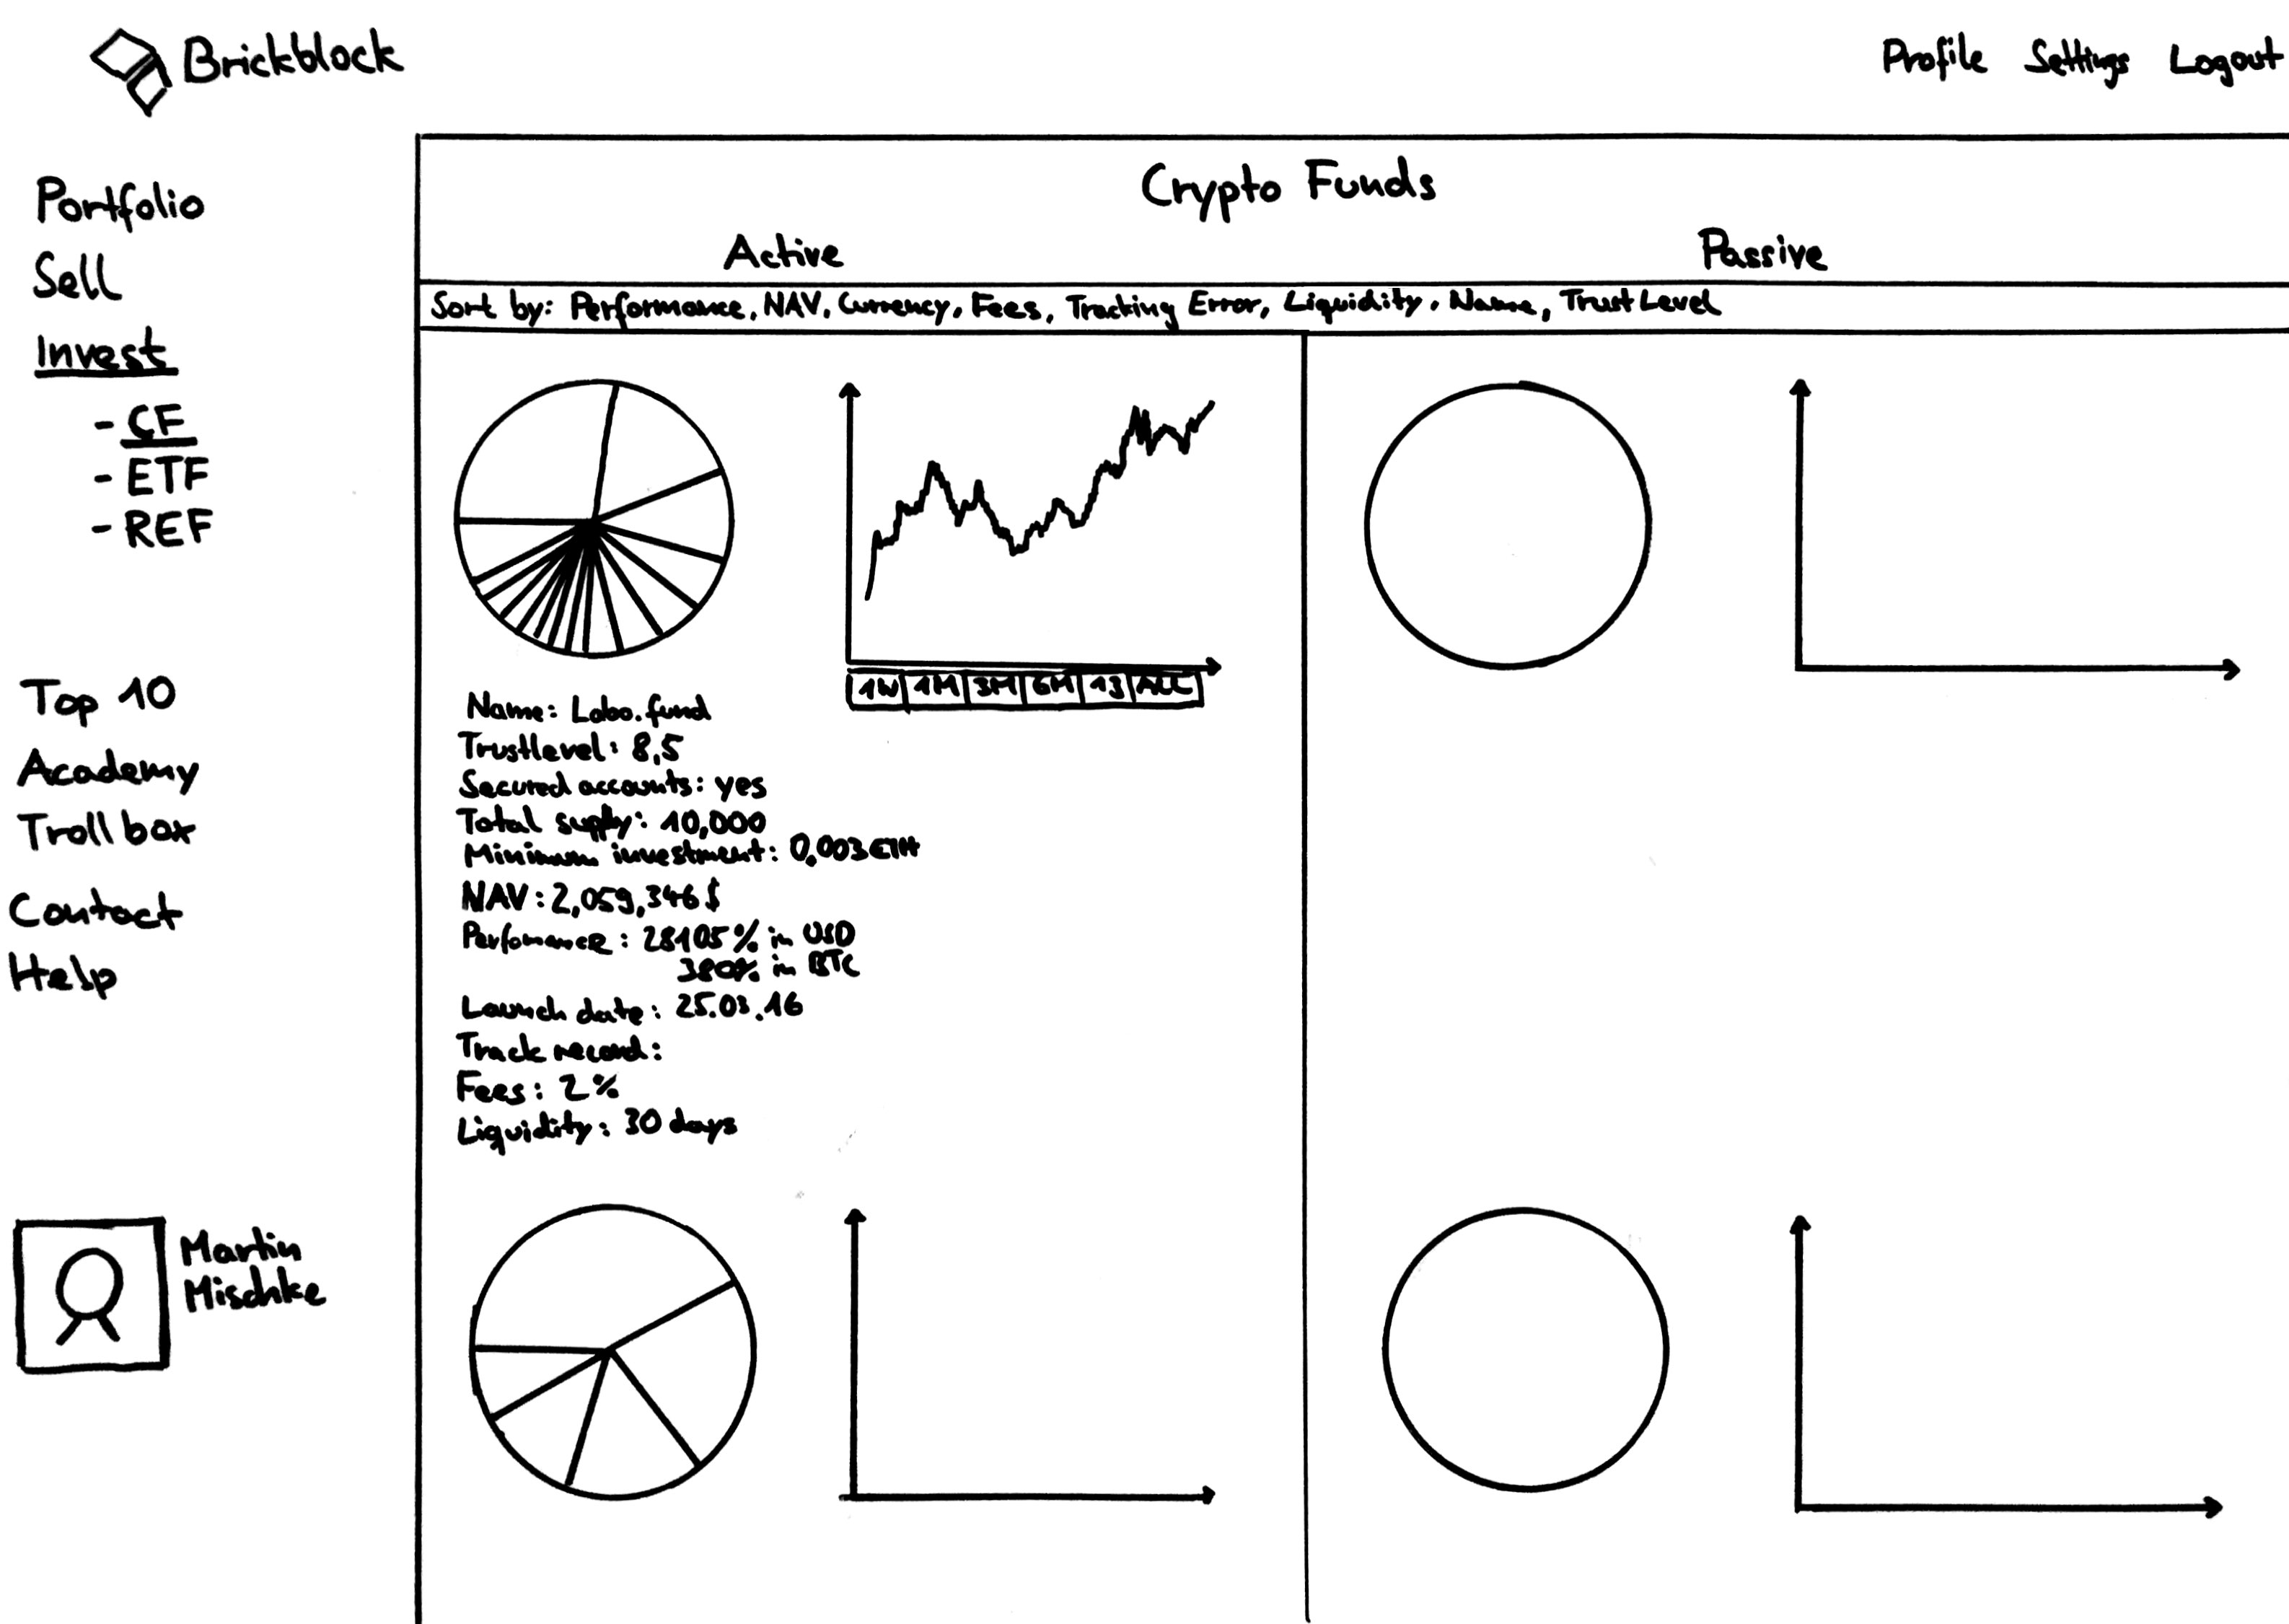 Brickblock
Profile Settings Logout
Portfolio
Sell
Invest
- CF
- ETF
- REF
Top 10
Academy
Trollbox
Contact
Help
Martin
Mischke
Crypto Funds
Active Passive
Sort by: Performance, NAV, Currency, Fees, Tracking Error, Liquidity, Name, Trust Level
1W 1M 3M 6M 1J ALL
Name: Lobo.fund
Trustlevel: 8,5
Secured accounts: yes
Total supply: 10,000
Minimum investment: 0,003 ETH
NAV: 2,059,346$
Perfomance: 28105% in USD
380% in BTC
Launch date: 25.03.16
Track record:
Fees: 2%
Liquidity: 30 days